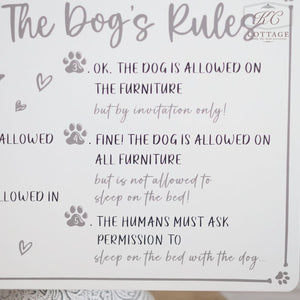 The Dog's Rules
KC
COTTAGE
3. OK. THE DOG IS ALLOWED ON
THE FURNITURE
but by invitation only!
ALLOWED
4. FINE! THE DOG IS ALLOWED ON
ALL FURNITURE
but is not allowed to
sleep on the bed!
LLOWED IN
5. THE HUMANS MUST ASK
PERMISSION TO
sleep on the bed with the dog...